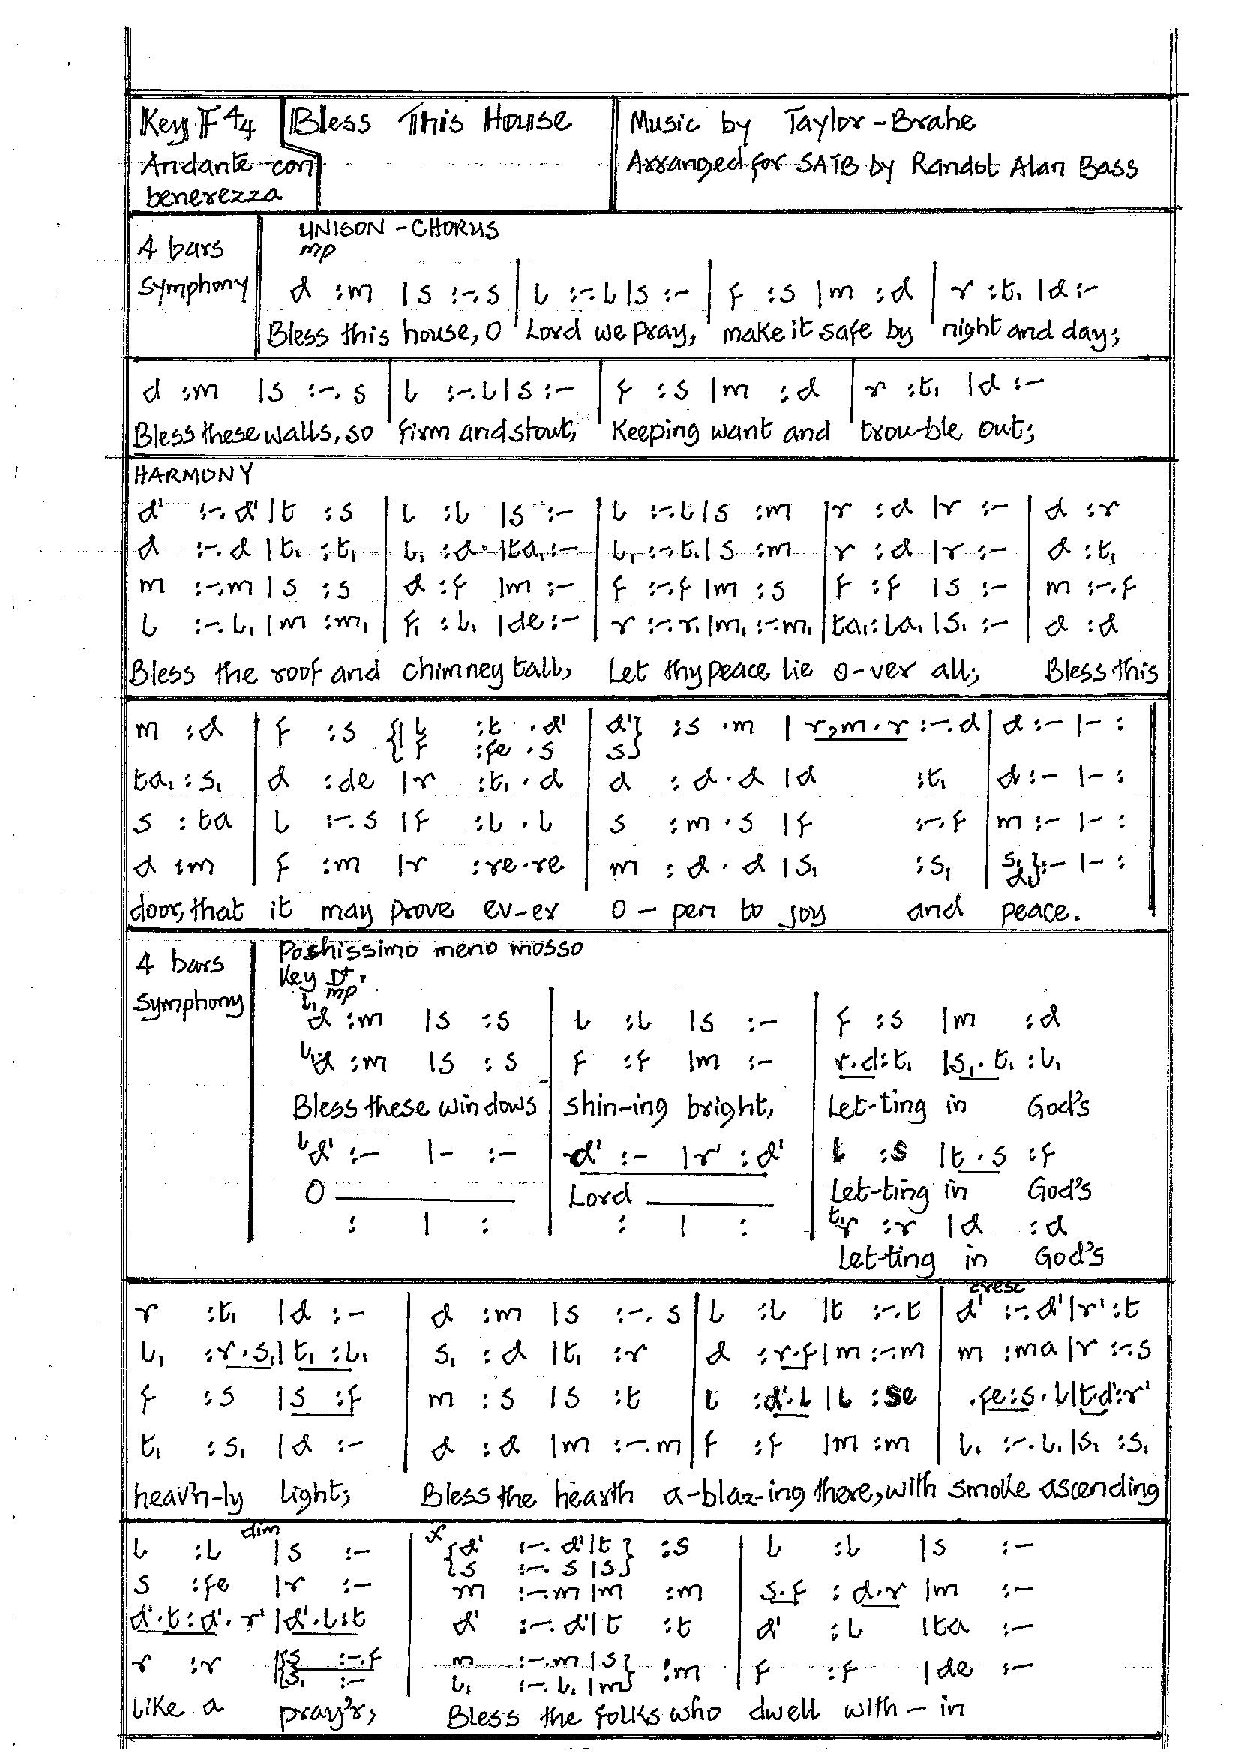 Key F 4/4 Bless This House Music by Taylor-Brahe
Andante con Arranged for SATB by Randol Alan Bass
benerezza
UNISON - CHORUS
4 bars mp
symphony d :m |s :-.s | l :-.l |s :- | f :s |m :d | r :t₁ |d :-
Bless this house, O Lord we pray, make it safe by night and day;
d :m |s :-.s | l :-.l |s :- | f :s |m :d | r :t₁ |d :-
Bless these walls, so firm and stout, Keeping want and trou-ble out;
HARMONY
d' :-.d' |t :s | l :l |s :- | l :-.l |s :m | r :d |r :- | d :r
d :-.d |t₁ :t₁ | l₁ :d. |ta₁ :- | l₁ :-.t₁ |s :m | r :d |r :- | d :t₁
m :-.m |s :s | d :f |m :- | f :-.f |m :s | f :f |s :- | m :-.f
l :-.l₁ |m :m₁ | f₁ :l₁ |de :- | r :-.r |m₁ :-.m₁ | ta₁ :la₁ |s₁ :- | d :d
Bless the roof and chimney tall, Let thy peace lie o-ver all; Bless this
m :d | f :s {|l :t .d' | d'} :s .m | r,m.r :-.d | d :- |- :
{|f :fe .s | s}
ta₁ :s₁ | d :de |r :t₁ .d | d :d.d |d :t₁ | d :- |- :
s :ta | l :-.s |f :l .l | s :m .s |f :-.f | m :- |- :
d :m | f :m |r :re.re | m :d .d |s₁ :s₁ | s₁ d} :- |- :
door, that it may prove ev-er o - pen to joy and peace.
4 bars Poshissimo meno mosso
Key D♭.
symphony l₁ mp
d :m |s :s | l :l |s :- | f :s |m :d
l₁d :m |s :s | f :f |m :- | r.d :t₁ |s₁.t₁ :l₁
Bless these windows shin-ing bright, Let-ting in God's
l d' :- |- :- | d' :- |r' :d' | l :s |t.s :f
O Lord Let-ting in God's
: | : | : | : | t₁r :r |d :d
Let-ting in God's
cresc
r :t₁ |d :- | d :m |s :-.s | l :l |t :-.t | d' :-.d' |r' :t
l₁ :r.s₁ |t₁ :l₁ | s₁ :d |t₁ :r | d :r.f |m :-.m | m :ma |r :-.s
f :s |s :f | m :s |s :t | l :d'.l |l :se | .fe :s.l |t.d' :r'
t₁ :s₁ |d :- | d :d |m :-.m | f :f |m :m | l₁ :-.l₁ |s₁ :s₁
heav'n-ly light; Bless the hearth a-blaz-ing there, with smoke ascending
dim f
l :l |s :- | {d' :-.d' |t} :s | l :l |s :-
{s :-.s |s}
s :fe |r :- | m :-.m |m :m | s.f :d.r |m :-
d'.t :d'.r' |d'.l :t | d' :-.d' |t :t | d' :l |ta :-
r :r |{s :-.f | m :-.m |s} :m | f :f |de :-
{s₁ :- | l₁ :-.l₁ |m}
like a pray'r; Bless the folks who dwell with - in